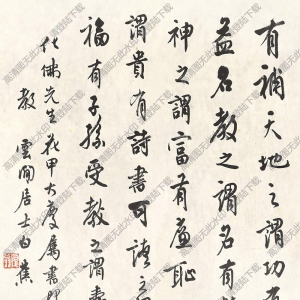 有補天地之謂功有
益名教之謂名有
神之謂富有廉恥
謂貴有詩書可讀之
福有子孫受教之謂壽
化佛先生花甲大慶屬書即
教 雲間居士白蕉